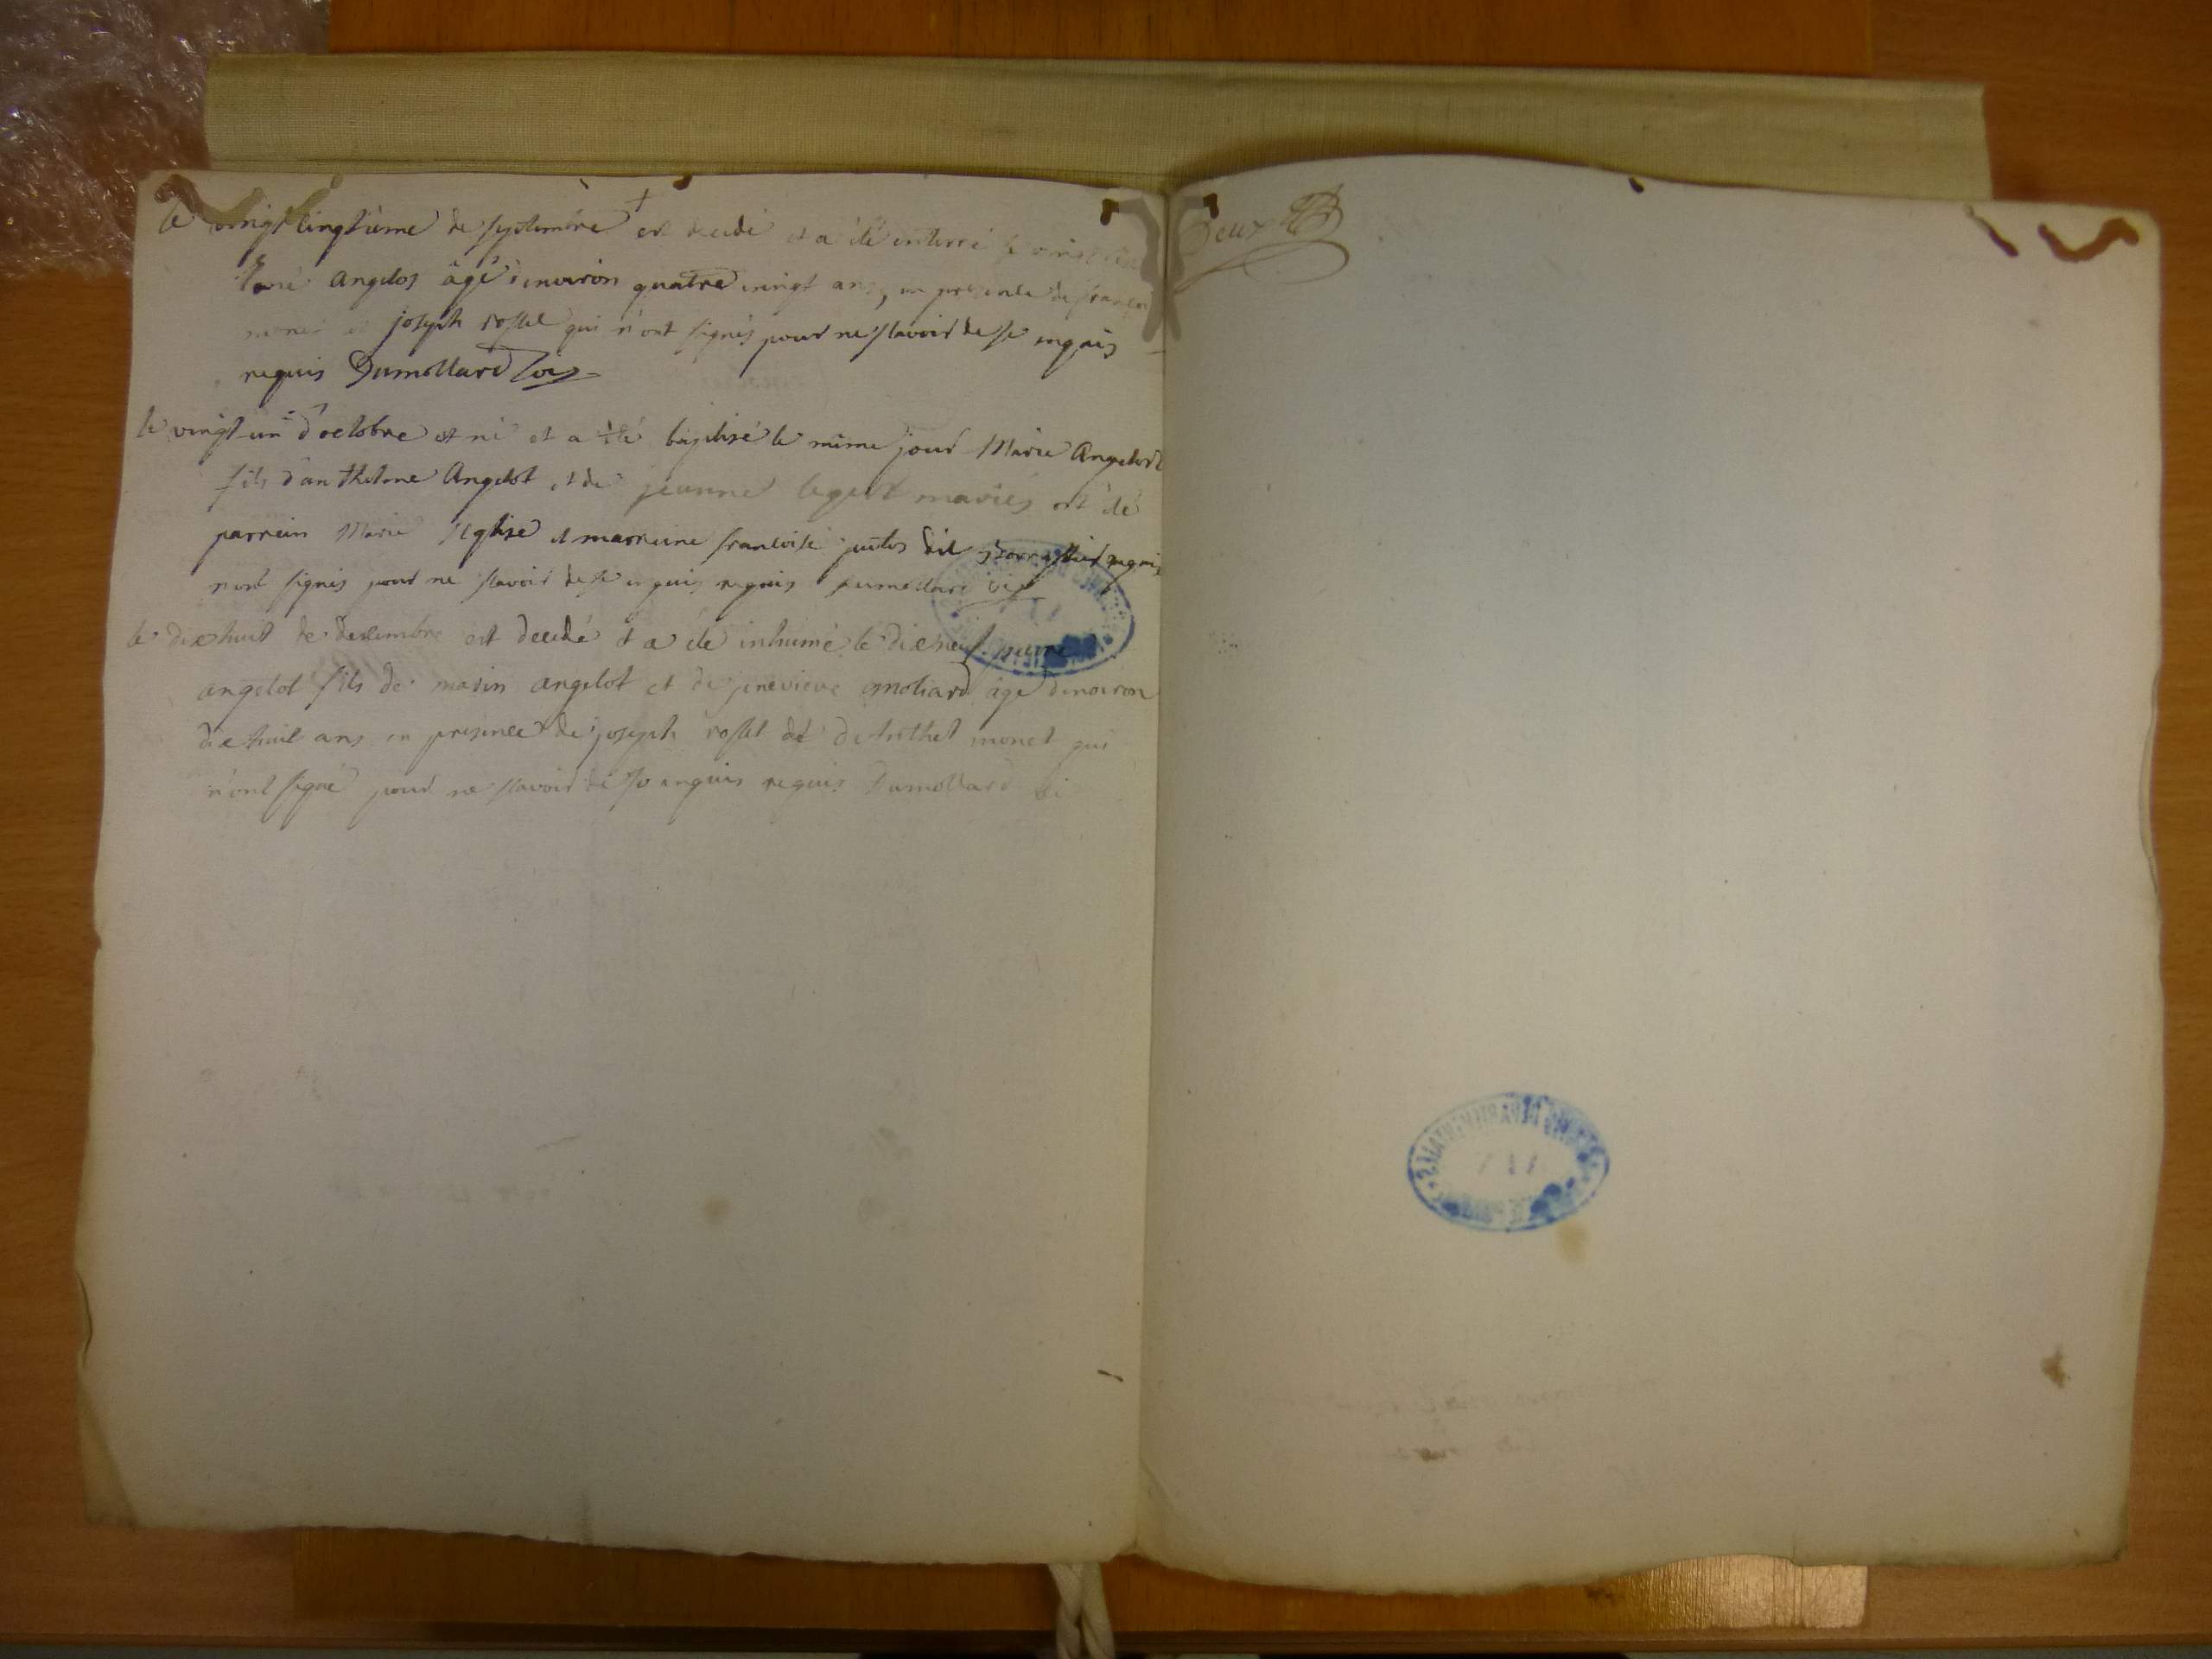 le vingt cinqtième de septembre est decidé et a été enterré le
angelos âgé d'environ quatre vingt ans, en presence de françois
monet et joseph rosset qui n'ont signés pour ne sçavoir de ce enquis
requis Dumollard vic
le vingt un d'octobre est né et a été baptisé le même jour Marie Angelot
fils d'anthelme Angelot et de jeanne leger mariés ont été
parrein Marie et marreine francoise dit
n'ont signés pour ne sçavoir de ce enquis requis Dumollard vic
le dixhuit de decembre est decedé et a été inhumé le dixneuf pierre
angelot fils de marin angelot et de jenevieve moliard âgé d'environ
dixhuit ans en presence de joseph rosset et d'Anthel monet qui
n'ont signé pour ne sçavoir de ce enquis requis Dumollard vi
Deux